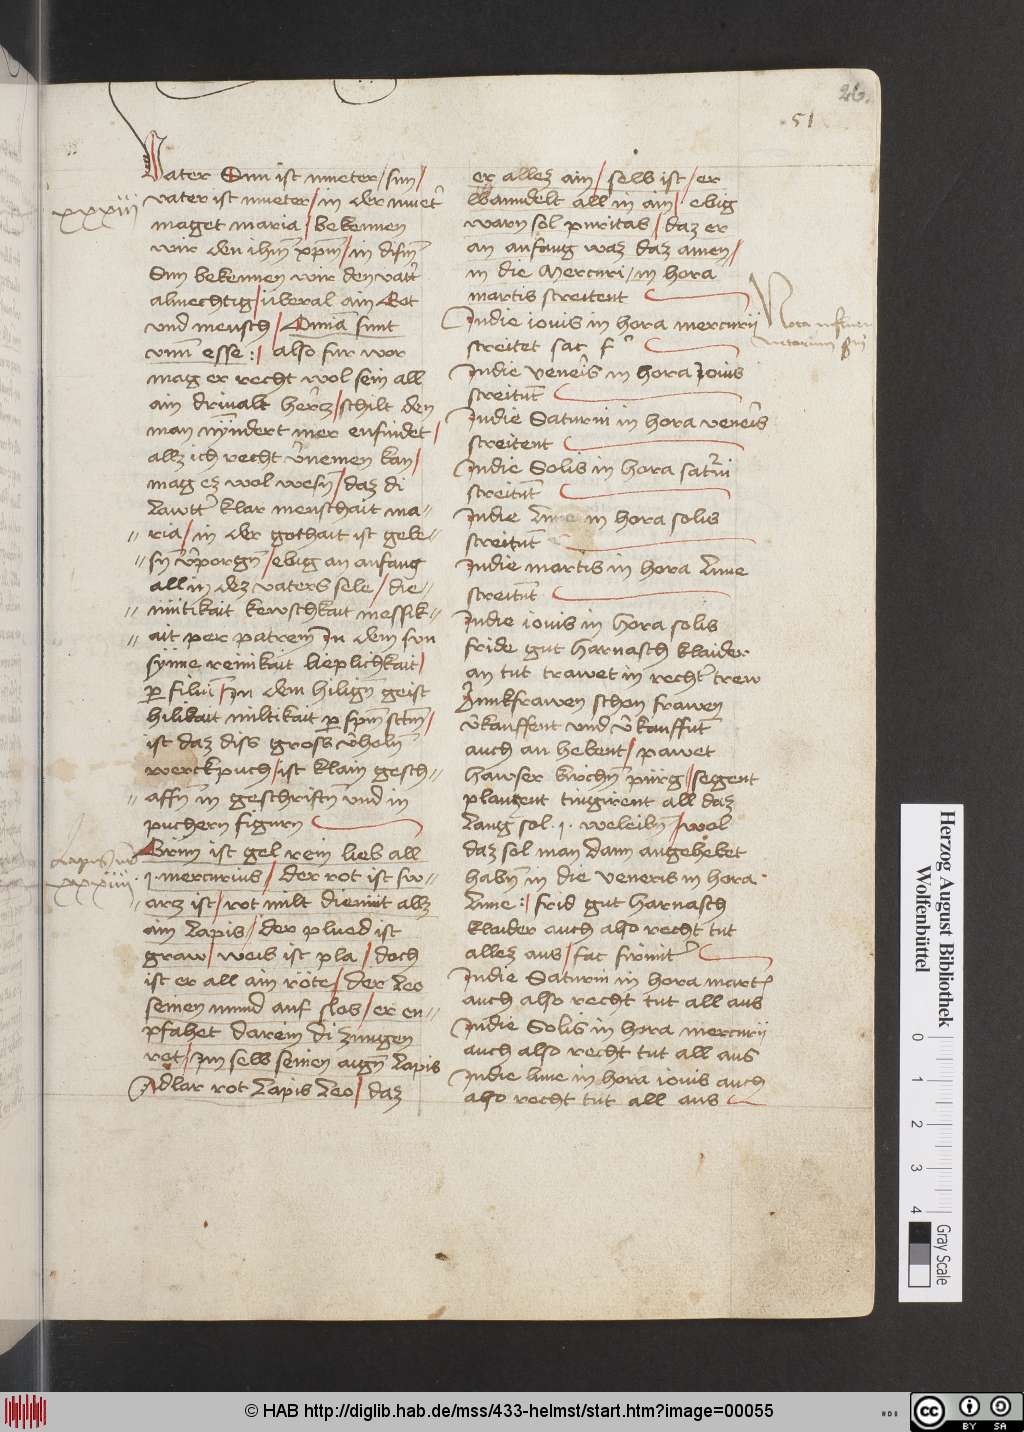 26.
51
Vater Sun ist mueter / sun /
vater ist mueter / in der muet'
maget maria / bekennen
wir den ihm̄ xpm̄ / in dism̄
Sun bekennen wir den vatt'
almechtig / überal ain Got
vnd mensch / Omīa sunt
vnū esse : / also für wor
mag er recht wol sein all
ain drivalt hercz / schilt den
man nÿndert mer enfindet /
allz ich recht v'nemen kan /
mag ez wol wesn̄ / daz di
Lawtt' klar menschait ma=
ria / in der gothait ist gebe=
sn̄ v'porgn̄ / ebig an anfang
all in dez vaters sele / die=
mütikait kewschkait messik=
ait per patrem In dem sun
sÿnne reinikait lieplichkait /
p̱ filiū / In dem hilign̄ geist
hilikait miltikait p̱ spm̄ sctm̄ /
ist daz diss gross v'holn̄
werckpuch / ist klain gesch=
affn̄ in geschriftn̄ vnd in
puchern figurn
Grün ist gel rein lieb all
.j. mercurius / der rot ist sw=
arz ist / rot milt diemüt allz
ain Lapis / der plued ist
graw / weis ist pla / doch
ist er all ain röte / der Leo
seinen mund auf slos / er en=
pfahet darein di zungen
rot / Im selb seinen aign̄ Lapis
Adlar rot Lapis Leo / daz
xxxiii
Lapis
xxxiiii
er allez ain / selb ist / er
wanndelt all in ain / ebig
warn sol puritas / daz er
an anfang waz daz amen /
in die Mercuri / in hora
martis streitent
In die iouis in hora mercurij
streitet fac f
In die veneris in hora Iouis
streitn̄t
In die Saturni in hora veneris
streitent
In die Solis in hora sat'ni
streitn̄t
In die Lune in hora solis
streitn̄t
In die martis in hora Lune
streitn̄t
In die iouis in hora solis
fride gut harnasch klaider
an tut trawet in recht' trew
Junkfrawen schon frawen
v'kauffent vnd v'kauffnt
auch an hebent / pawet
hawser kirchn̄ pürg / segent
plangent tingirent all daz
Lang sol .j. weleibn̄ / wol
daz sol man dann angehebet
habn̄ in die veneris in hora
Lune : / frid gut harnasch
klaider auch also recht tut
allez aus / fac firmit'
In die Saturni in hora mart'
auch also recht tut all aus
In die Solis in hora mercurij
auch also recht tut all aus
In die lune in hora iouis auch
also recht tut all aus
Nota
Herzog August Bibliothek
Wolfenbüttel
0 1 2 3 4
Gray Scale
© HAB http://diglib.hab.de/mss/433-helmst/start.htm?image=00055
HAB
CC BY SA